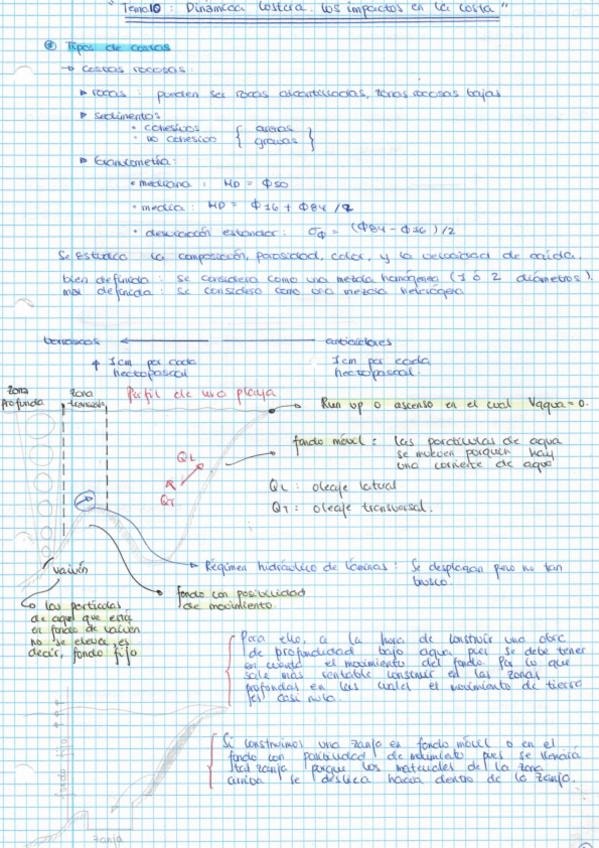 "Tema 10 : Dinámica Costera. Los impactos en la costa"
Tipos de costas
→ Costas rocosas:
▸ rocas : pueden ser rocas acantilladas, zonas rocosas bajas
▸ Sedimentos
• cohesivos { arenas }
• no cohesivo { gravas }
▸ Granulometría:
• mediana : MD = Φ50
• media : MD = Φ16 + Φ84 /2
• desviación estandar : σΦ = (Φ84 - Φ16) /2
Se estudia la composición, porosidad, color, y la velocidad de caída.
bien definida : se considera como una mezcla homogénea (1 ó 2 diámetros).
mal definida : se considera como una mezcla
borrascas ← → anticiclones
↑ 1cm por cada
hectopascal
1cm por cada
hectopascal
Zona
profunda
Zona
Perfil de una playa
Run up o ascenso en el cual Vagua = 0.
fondo móvil : las partículas de agua
se mueven porque hay
una corriente de agua
QL
QT
QL : oleaje
QT : oleaje transversal.
Régimen hidráulico de láminas : Se desplazan pero no tan
brusco.
vaivén
fondo con posibilidad
de movimiento
las partículas
de agua que están
en fondo de vaivén
no se elevan, es
decir, fondo fijo
Para ello, a la hora de construir una obra
de profundidad bajo agua pues se debe tener
en cuenta el movimiento del fondo. Por lo que
sale más rentable construir en las zonas
profundas en las cuales el movimiento de tierra
es casi nulo.
Si construimos una zanja en fondo móvil o en el
fondo con posibilidad de movimiento pues se llenaría
tal zanja porque los materiales de la zona
arriba se desliza hacia dentro de la zanja.
fondo fijo
zanja